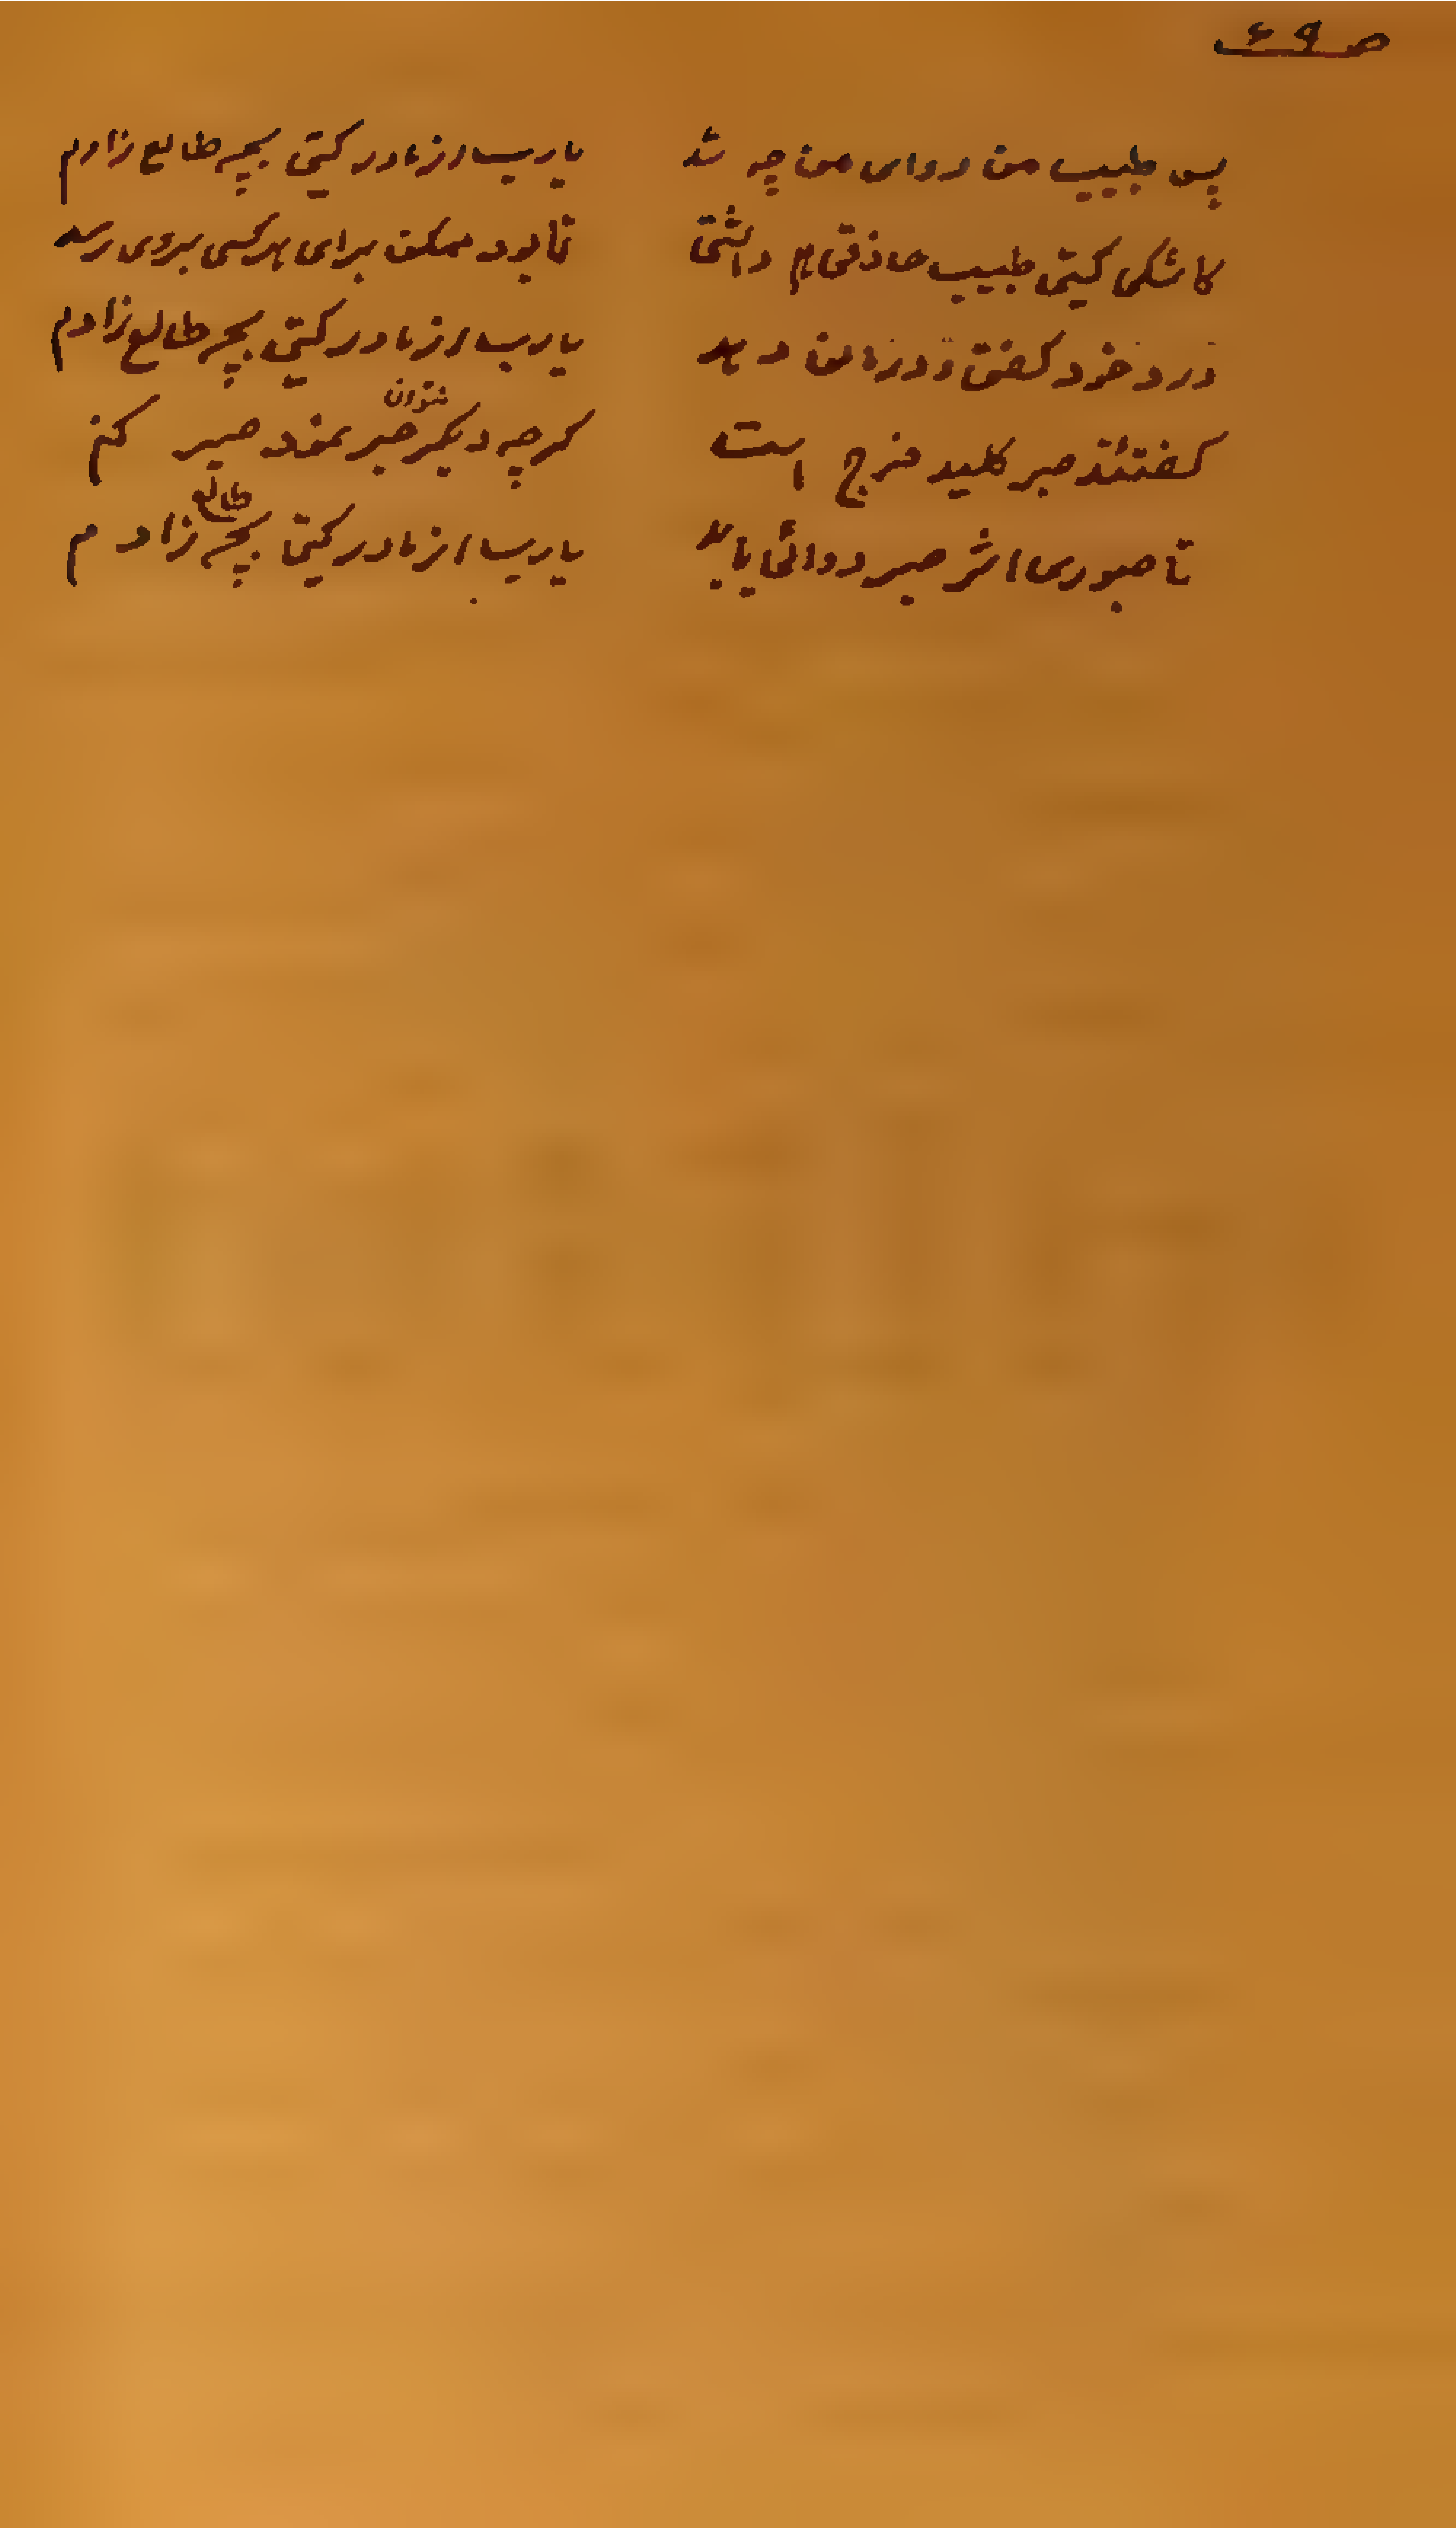 ص ۶۹
پس طبیب من دوای من چه شد یارب از مادر گیتی بچه طالع زادم
کاشکی گیتی طبیب حاذقی هم داشتی تا بود ممکن برای هرکسی بروی رسد
درد خود گفتن دهد یارب از مادر گیتی بچه طالع زادم
گفتند صبر کلید فرج است گرچه دیگر صبر نتوان صبر کنم
تا صبوری اثر صبر دوائی یابد یارب از مادر گیتی بچه طالع زادم